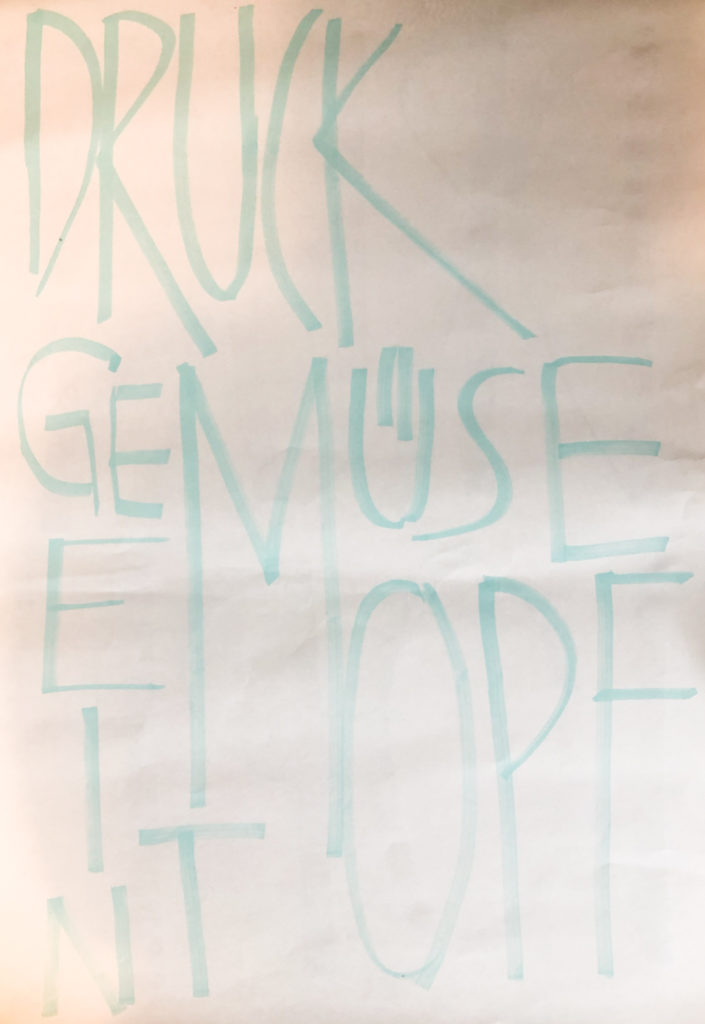 DRUCK
GEMÜSE
EINTOPF